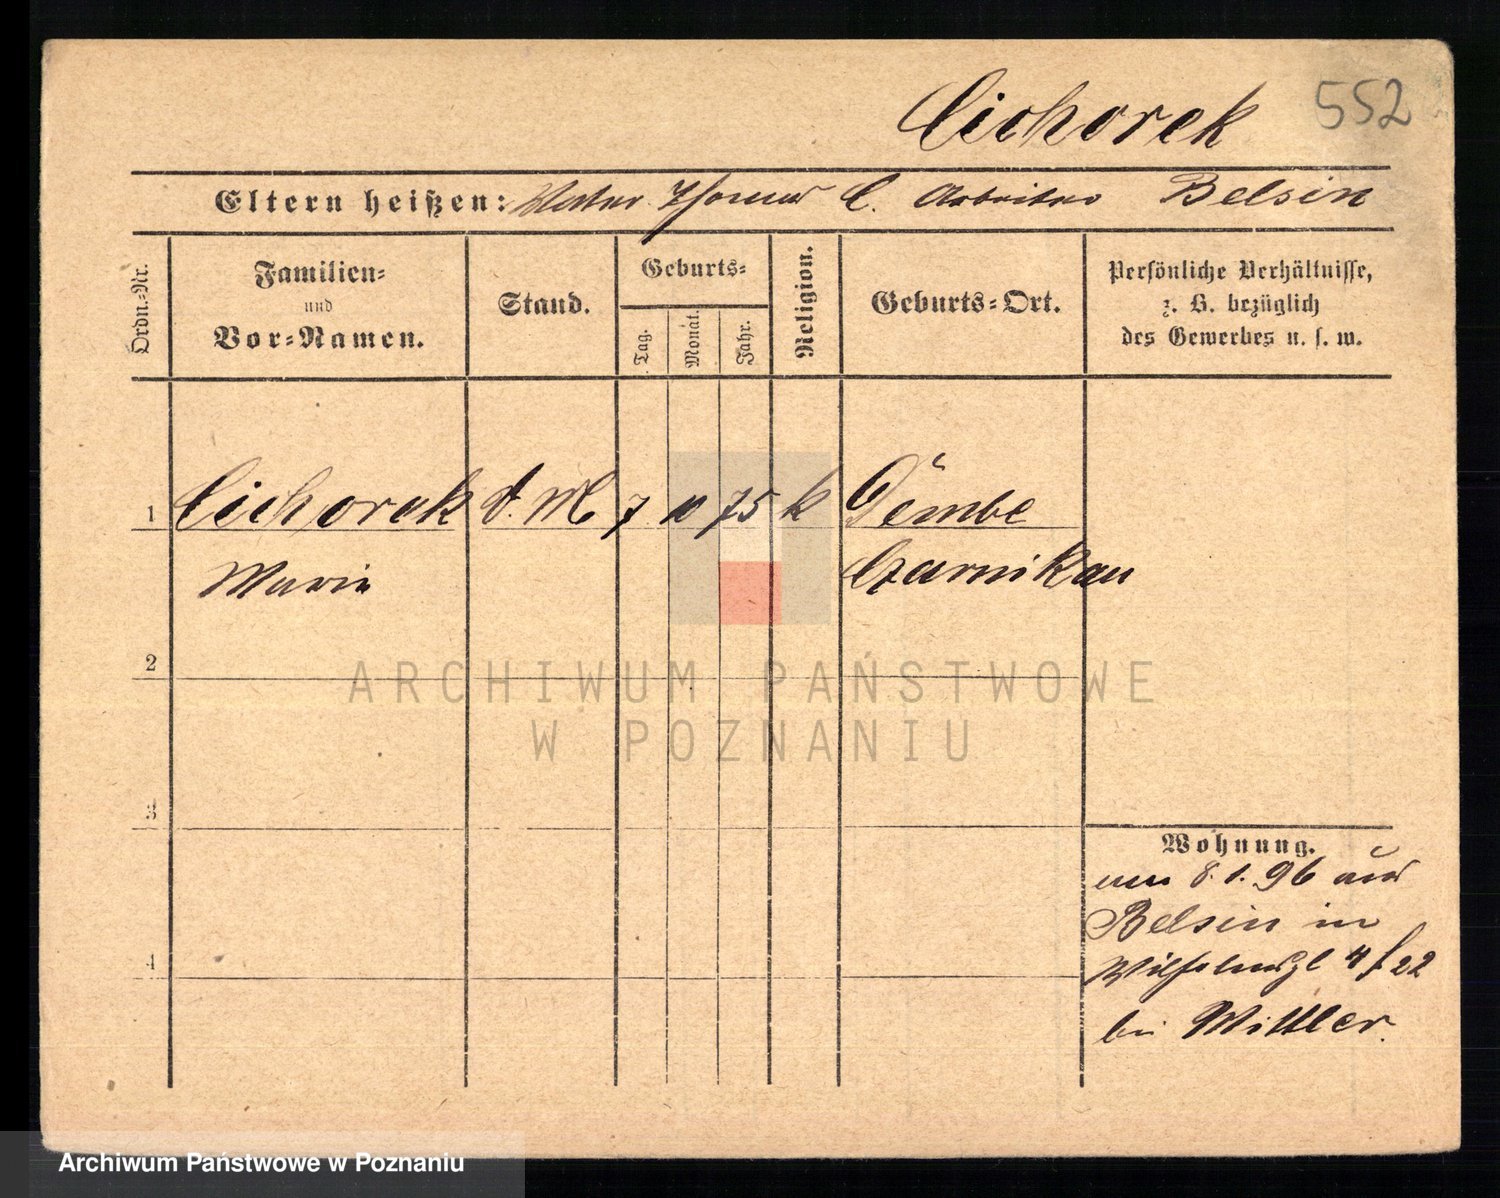 Cichorek 552
Eltern heißen: Vater Thomas C. Arbeiter Belsin
Ordn.-Nr.
Familien-
und
Vor-Namen.
Stand.
Geburts-
Tag.
Monat.
Jahr.
Religion.
Geburts-Ort.
Persönliche Verhältnisse,
z. B. bezüglich
des Gewerbes u. s. w.
1 Cichorek d. M. 7 10 75 k Dembe
Marie Czarnikau
2
3
4
Wohnung.
8.1.96 aus
Belsin in
4/22
bei Mittler.
ARCHIWUM PAŃSTWOWE
W POZNANIU
Archiwum Państwowe w Poznaniu